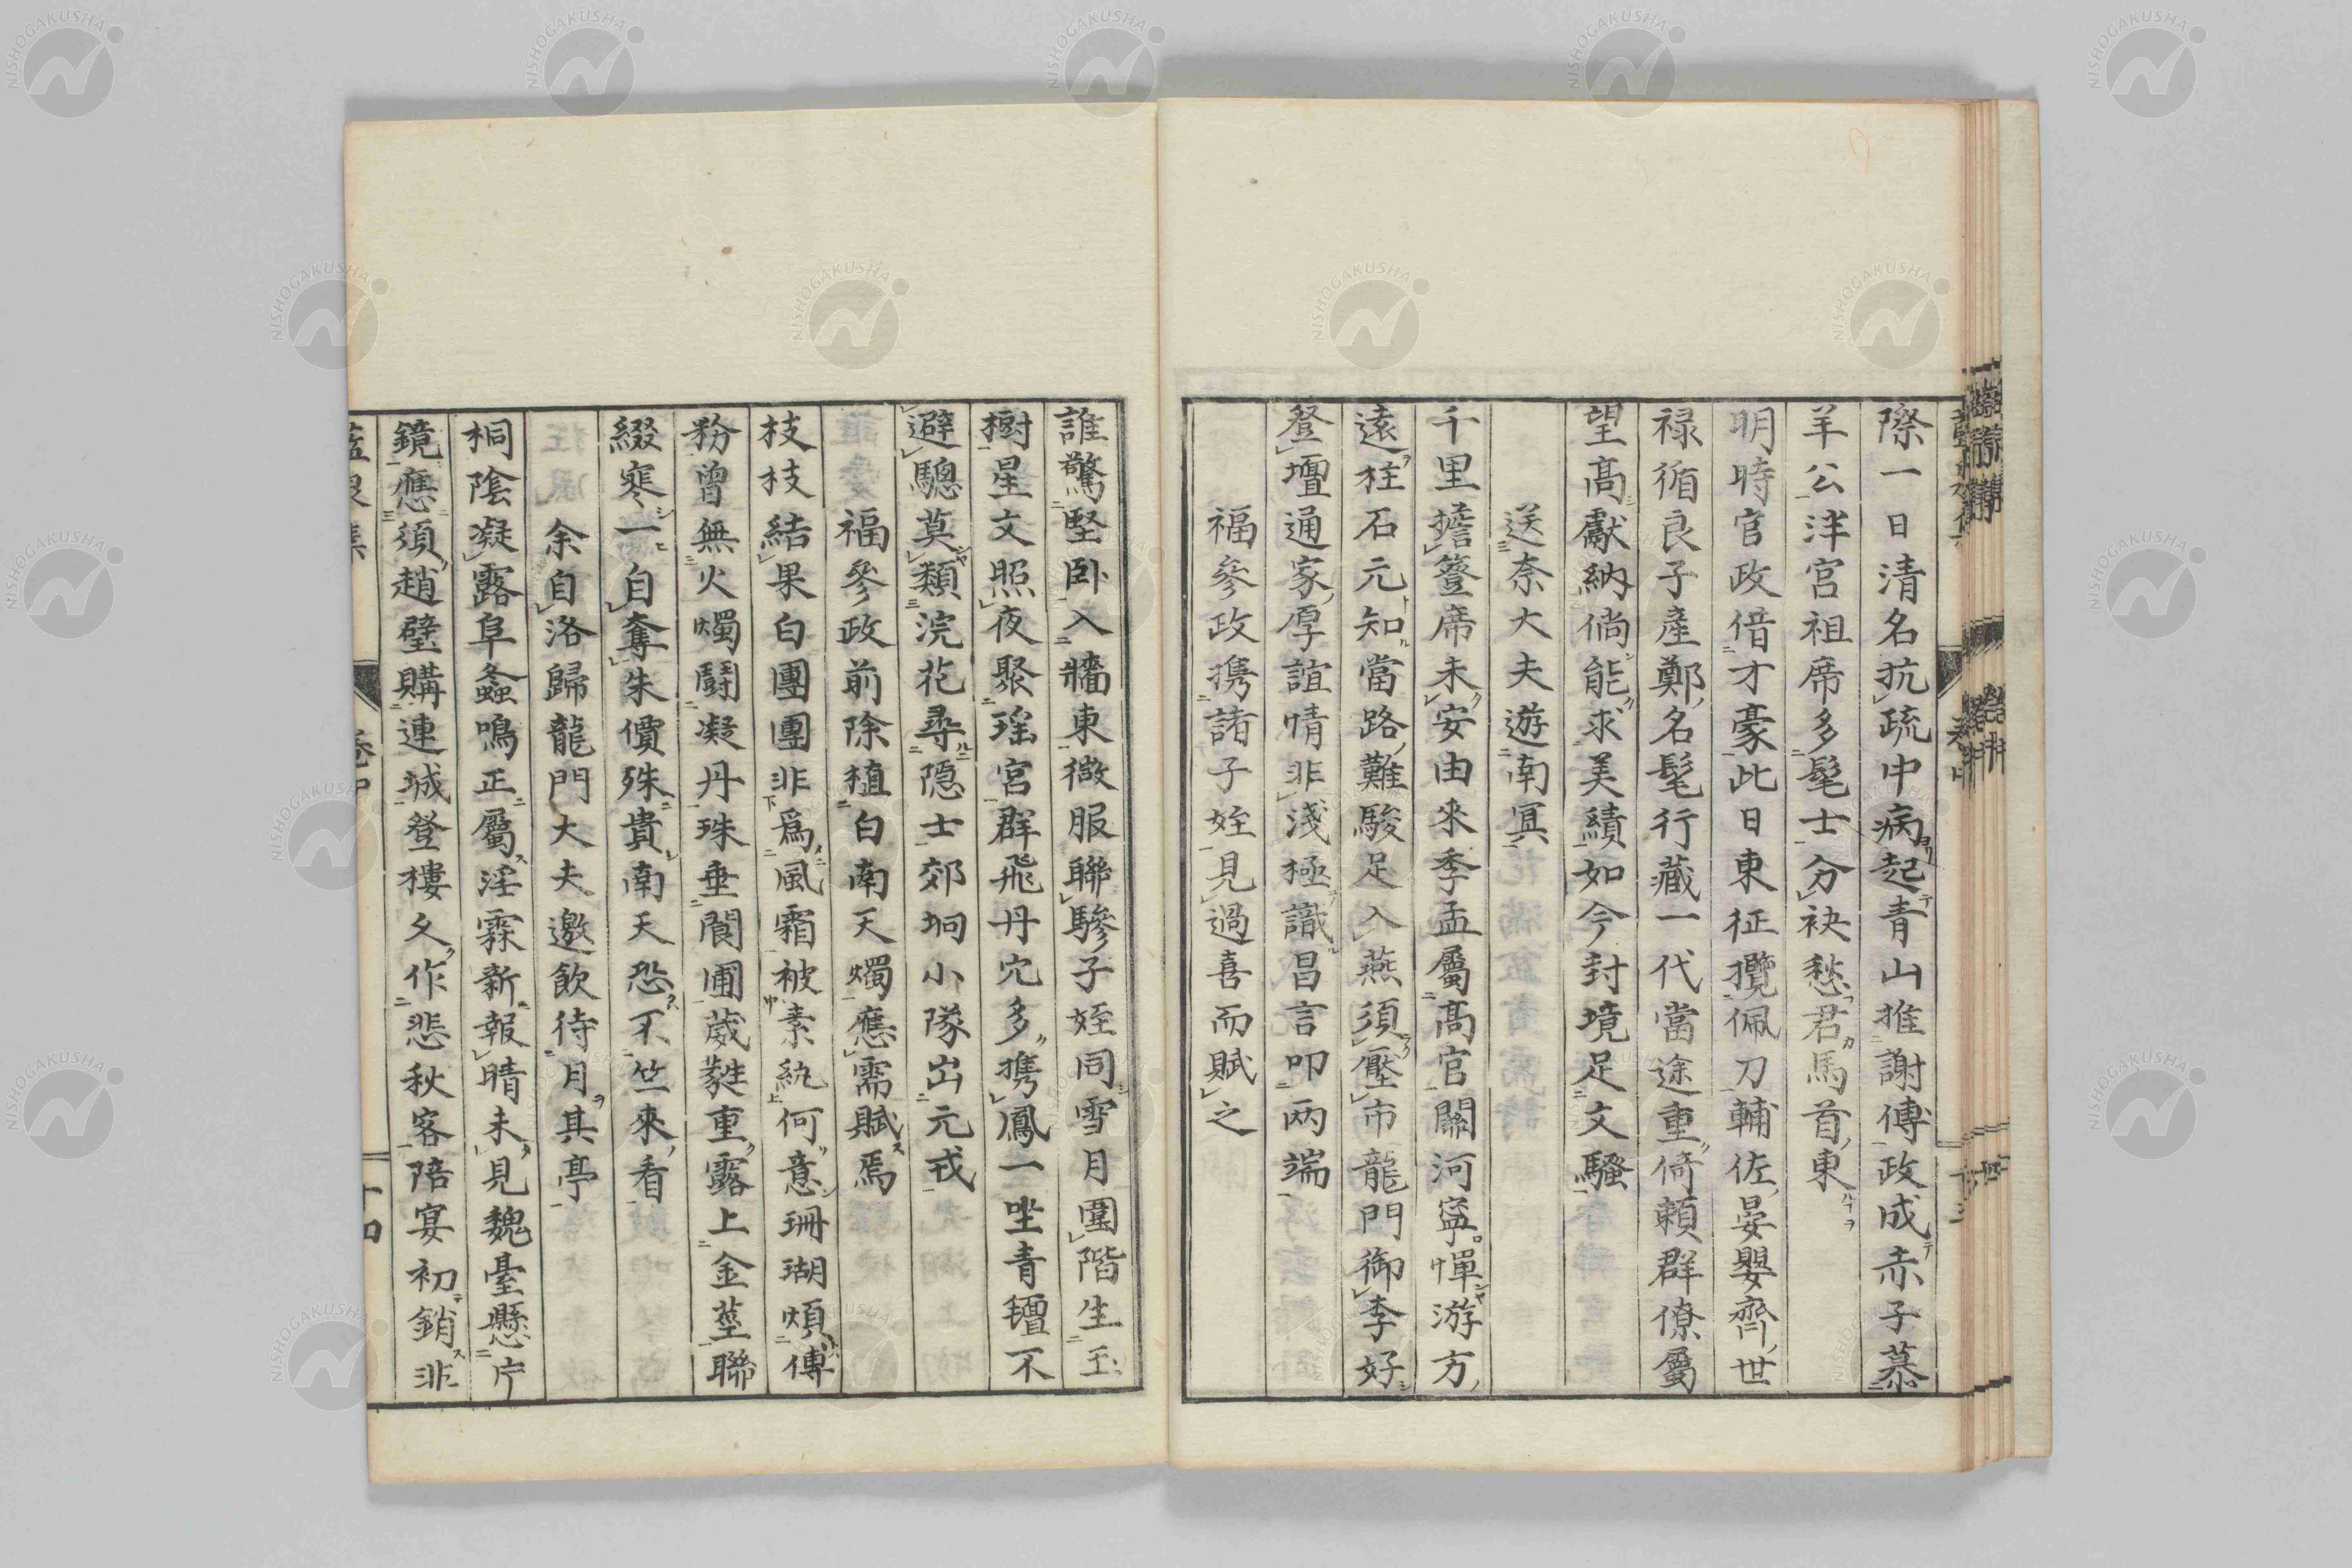 際一日清名抗疏中病起青山推謝傅政成赤子慕
羊公泮宮祖席多髦士分袂愁君馬首東
明時官政借才豪此日東征攬佩刀輔佐晏嬰齊世
禄循良子產鄭名髦行藏一代當途重倚賴群僚屬
望高獻納倘能求美績如今封境足文騷
送奈大夫遊南冥
千里擔簦席未安由來季孟屬高官關河寧憚游方
遠柱石元知當路難駿足入燕須壓市龍門御李好
登壇通家厚誼情非淺極識昌言叩兩端
福參政攜諸子姪見過喜而賦之
誰驚堅臥入牆東微服聯驂子姪同雪月圍階生玉
樹星文照夜聚瑤宮群飛丹穴多攜鳳一坐青氊不
避驄莫類浣花尋隱士郊坰小隊出元戎
福參政前除植白南天燭應需賦焉
枝枝結果白團團非為風霜被素紈何意珊瑚煩傅
粉曾無火燭鬪凝丹珠垂閬圃葳蕤重露上金莖聯
綴寒一自奪朱價殊貴南天恐不竺來看
余自洛歸龍門大夫邀飲待月其亭
桐陰凝露阜螽鳴正屬淫霖新報晴未見魏臺懸片
鏡應須趙璧購連城登樓久作悲秋客陪宴初銷非
卷中
十四
NISHOGAKUSHA